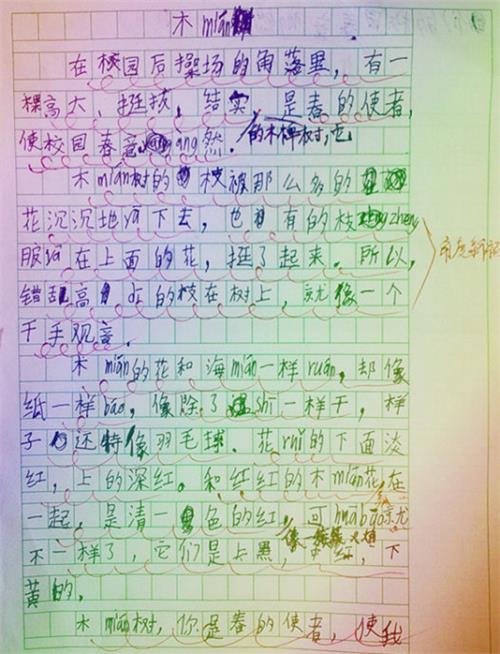 木mián
在校园后操场的角落里,有一
棵高大、挺拔、结实的木棉树,它是春的使者,
使校园春意 àng然.
木mián树的枝被那么多的
花沉沉地yā下去,也有的枝 zhēng
服yā在上面的花,挺了起来.所以,
错乱高 的枝在树上,就像一个
千手观音.
木mián的花和海mián一样ruǎn,却像
纸一样báo,像除了 shī一样干,样
子还特像羽毛球.花ruǐ的下面淡
红,上的深红。和红红的木mián花在
一起,是清一色的红,可huā bāo就
不一样了,它们是上黑,中红,下
像一簇簇火焰
黄的.
木mián树,你是春的使者,使我